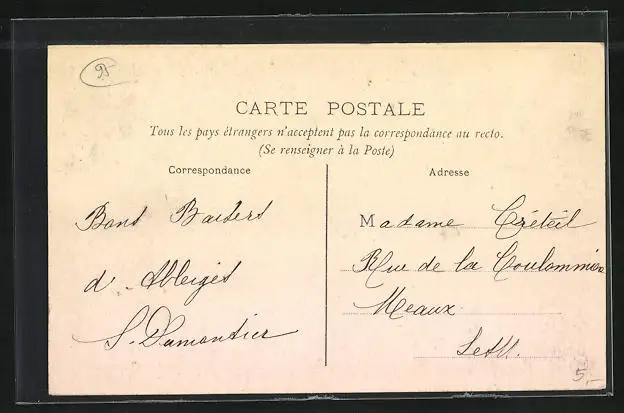 95
CARTE POSTALE
Tous les pays étrangers n'acceptent pas la correspondance au recto.
(Se renseigner à la Poste)
Correspondance
Adresse
Bons Baisers
d'Ableiges
S. Dumontier
Madame Créteil
Rue de la Coulommière
Meaux
S et M.